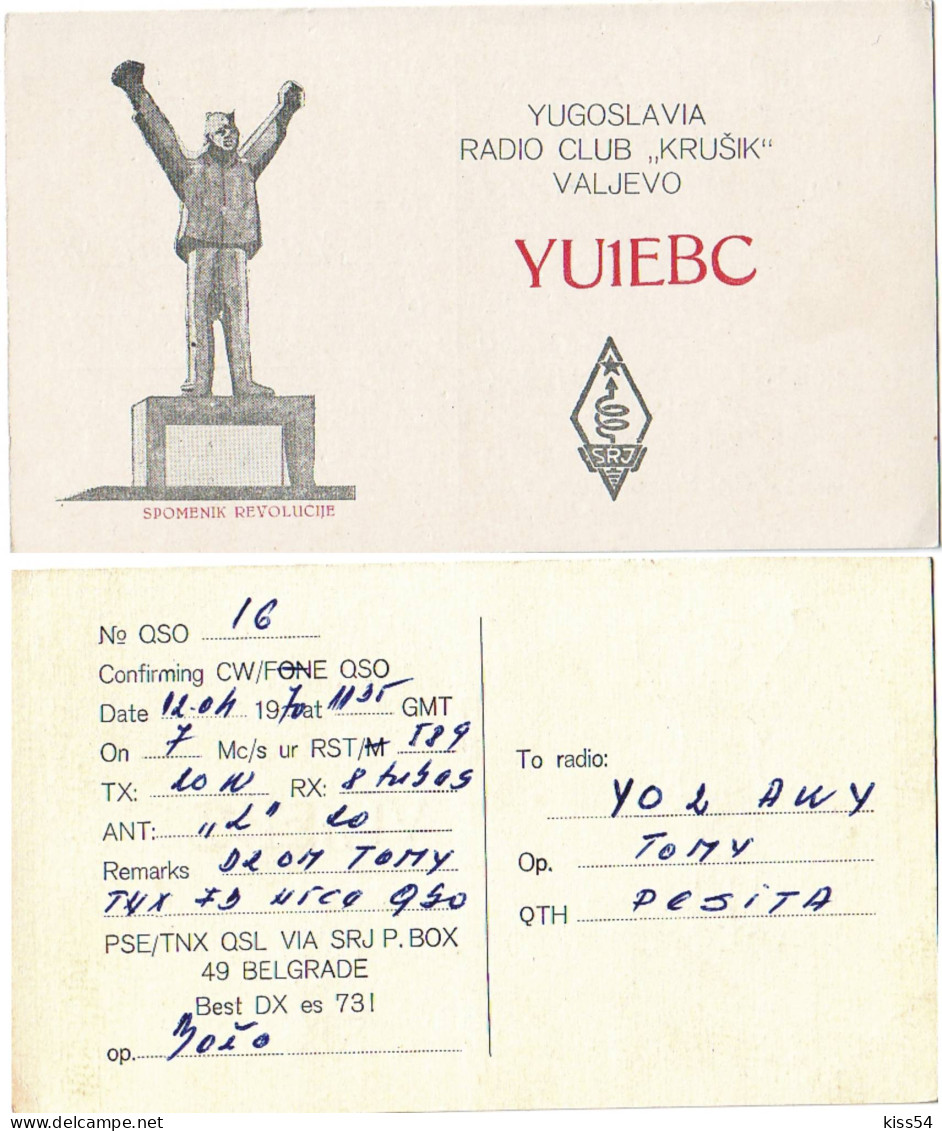 YUGOSLAVIA
RADIO CLUB „KRUŠIK“
VALJEVO
YU1EBC
SRJ
SPOMENIK REVOLUCIJE
№ QSO 16
Confirming CW/FONE QSO
Date 12.04 1970 at 1135 GMT
On 7 Mc/s ur RST/M 589
TX: 20 W RX: 8 tubes
ANT: „L“ 20
Remarks DR OM TOMY
TNX FB NICE QSO
PSE/TNX QSL VIA SRJ P. BOX
49 BELGRADE
Best DX es 73!
op. Božo
To radio:
YO2 AWY
Op. TOMY
QTH RESITA
kiss54